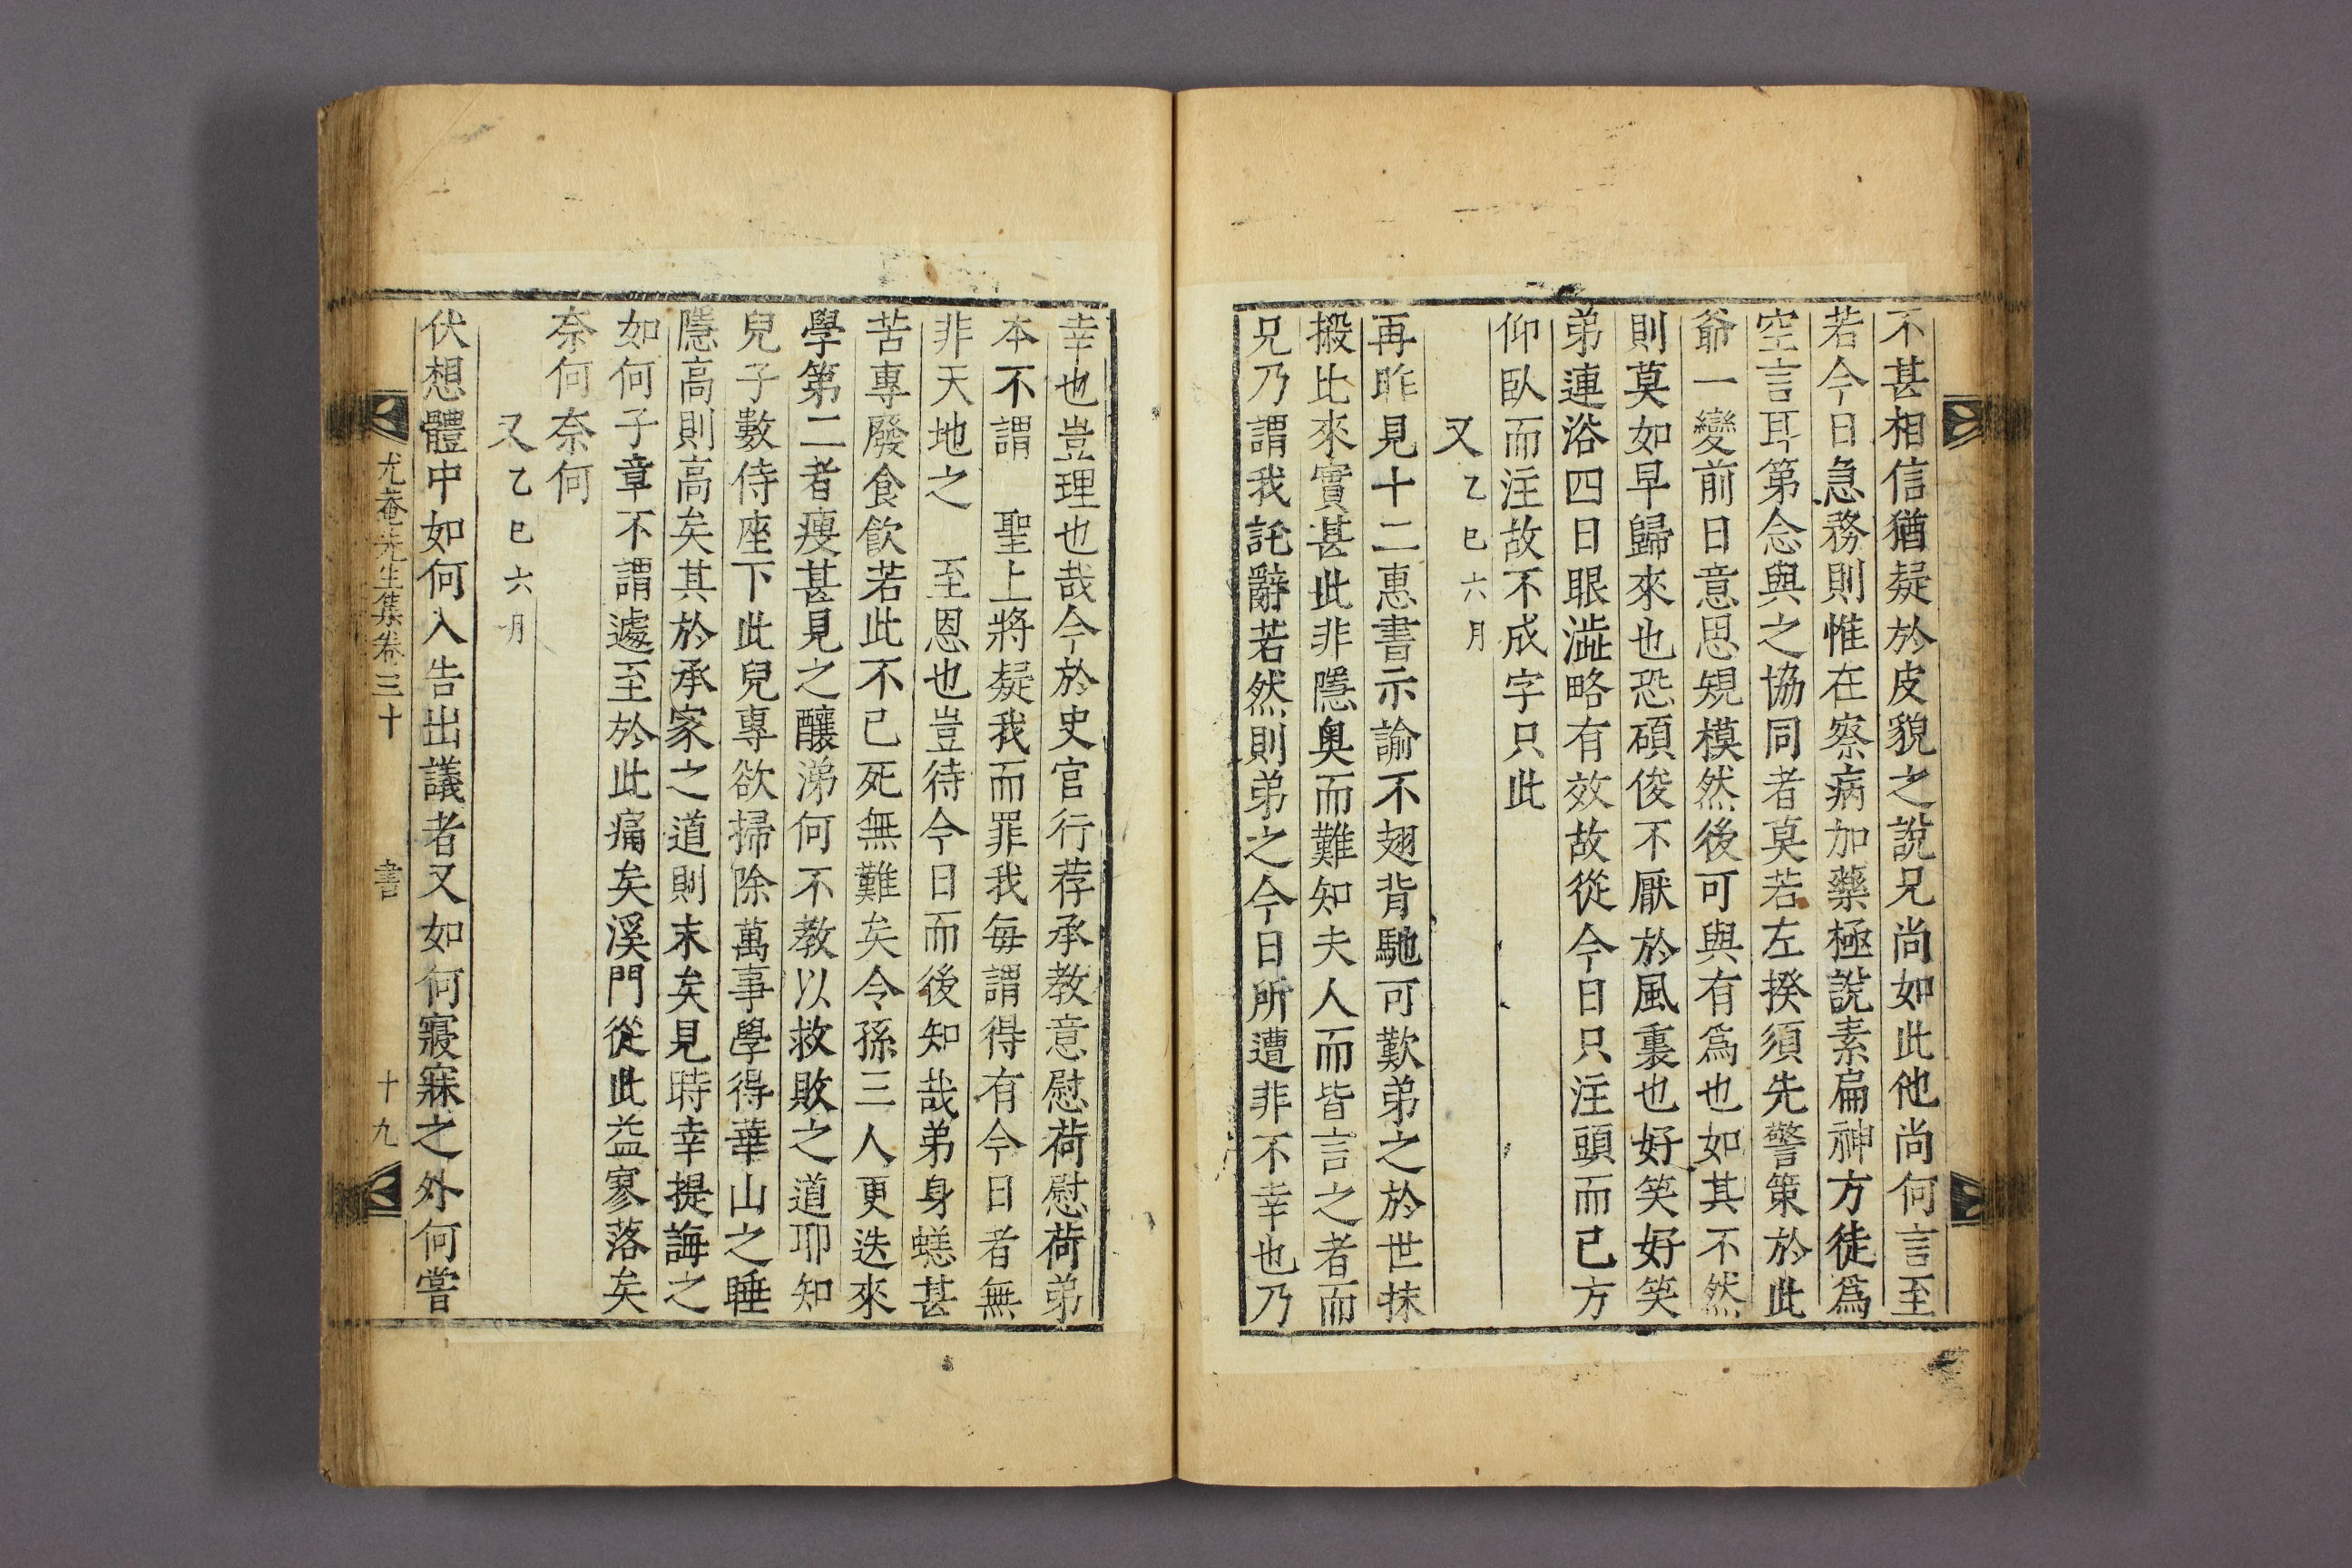 不甚相信猶疑於皮貌之說兄尚如此他尚何言至
若今日急務則惟在察病加藥極說素扁神方徒爲
空言耳第念與之協同者莫若左揆須先警策於此
爺一變前日意思規模然後可與有爲也如其不然
則莫如早歸來也恐碩俊不厭於風裏也好笑好笑
弟連浴四日眼澁略有效故從今日只注頭而已方
仰臥而注故不成字只此
又 乙巳六月
再昨見十二惠書示諭不翅背馳可歎弟之於世抹
搬比來實甚此非隱奧而難知夫人而皆言之者而
兄乃謂我託辭若然則弟之今日所遭非不幸也乃
幸也豈理也哉今於史官行荐承教意慰荷慰荷弟
本不謂 聖上將疑我而罪我每謂得有今日者無
非天地之 至恩也豈待今日而後知哉弟身蟋甚
苦專廢食飮若此不已死無難矣令孫三人更迭來
學第二者瘦甚見之釀涕何不教以救敗之道耶知
兒子數侍座下此兒專欲掃除萬事學得華山之睡
隱高則高矣其於承家之道則末矣見時幸提誨之
如何子章不謂遽至於此痛矣溪門從此益寥落矣
奈何奈何
又 乙巳六月
伏想體中如何入告出議者又如何寢寐之外何嘗
尤菴先生集卷三十 書 十九